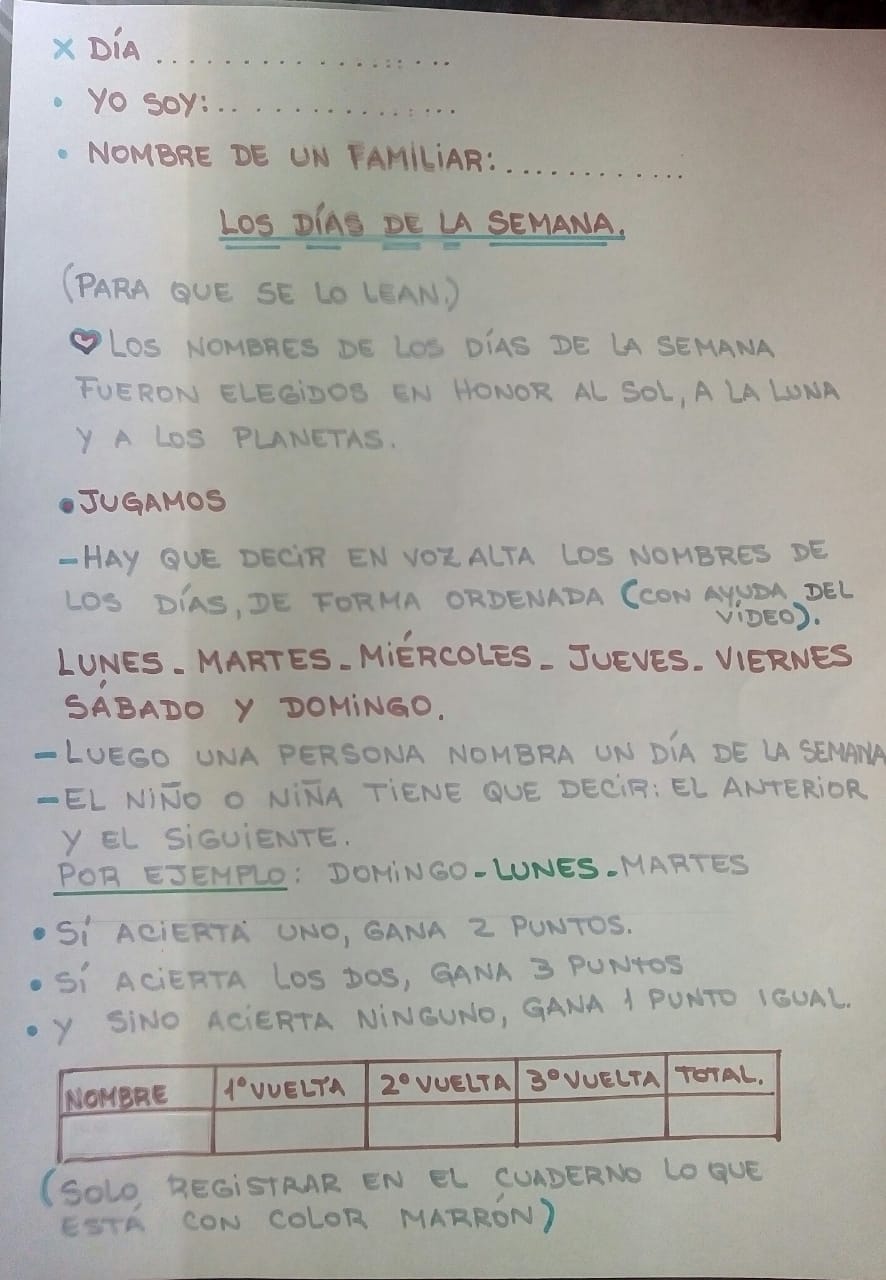 X DÍA ....................
• YO SOY: ................
• NOMBRE DE UN FAMILIAR: .............
LOS DÍAS DE LA SEMANA.
(PARA QUE SE LO LEAN.)
LOS NOMBRES DE LOS DÍAS DE LA SEMANA
FUERON ELEGIDOS EN HONOR AL SOL, A LA LUNA
Y A LOS PLANETAS.
• JUGAMOS
- HAY QUE DECIR EN VOZ ALTA LOS NOMBRES DE
LOS DÍAS, DE FORMA ORDENADA (CON AYUDA DEL
VÍDEO).
LUNES - MARTES - MIÉRCOLES - JUEVES - VIERNES
SÁBADO Y DOMINGO.
- LUEGO UNA PERSONA NOMBRA UN DÍA DE LA SEMANA
- EL NIÑO O NIÑA TIENE QUE DECIR: EL ANTERIOR
Y EL SIGUIENTE.
POR EJEMPLO: DOMINGO - LUNES - MARTES
• SÍ ACIERTA UNO, GANA 2 PUNTOS.
• SÍ ACIERTA LOS DOS, GANA 3 PUNTOS
• Y SINO ACIERTA NINGUNO, GANA 1 PUNTO IGUAL.
NOMBRE 1º VUELTA 2º VUELTA 3º VUELTA TOTAL.
(SOLO REGISTRAR EN EL CUADERNO LO QUE
ESTÁ CON COLOR MARRÓN)